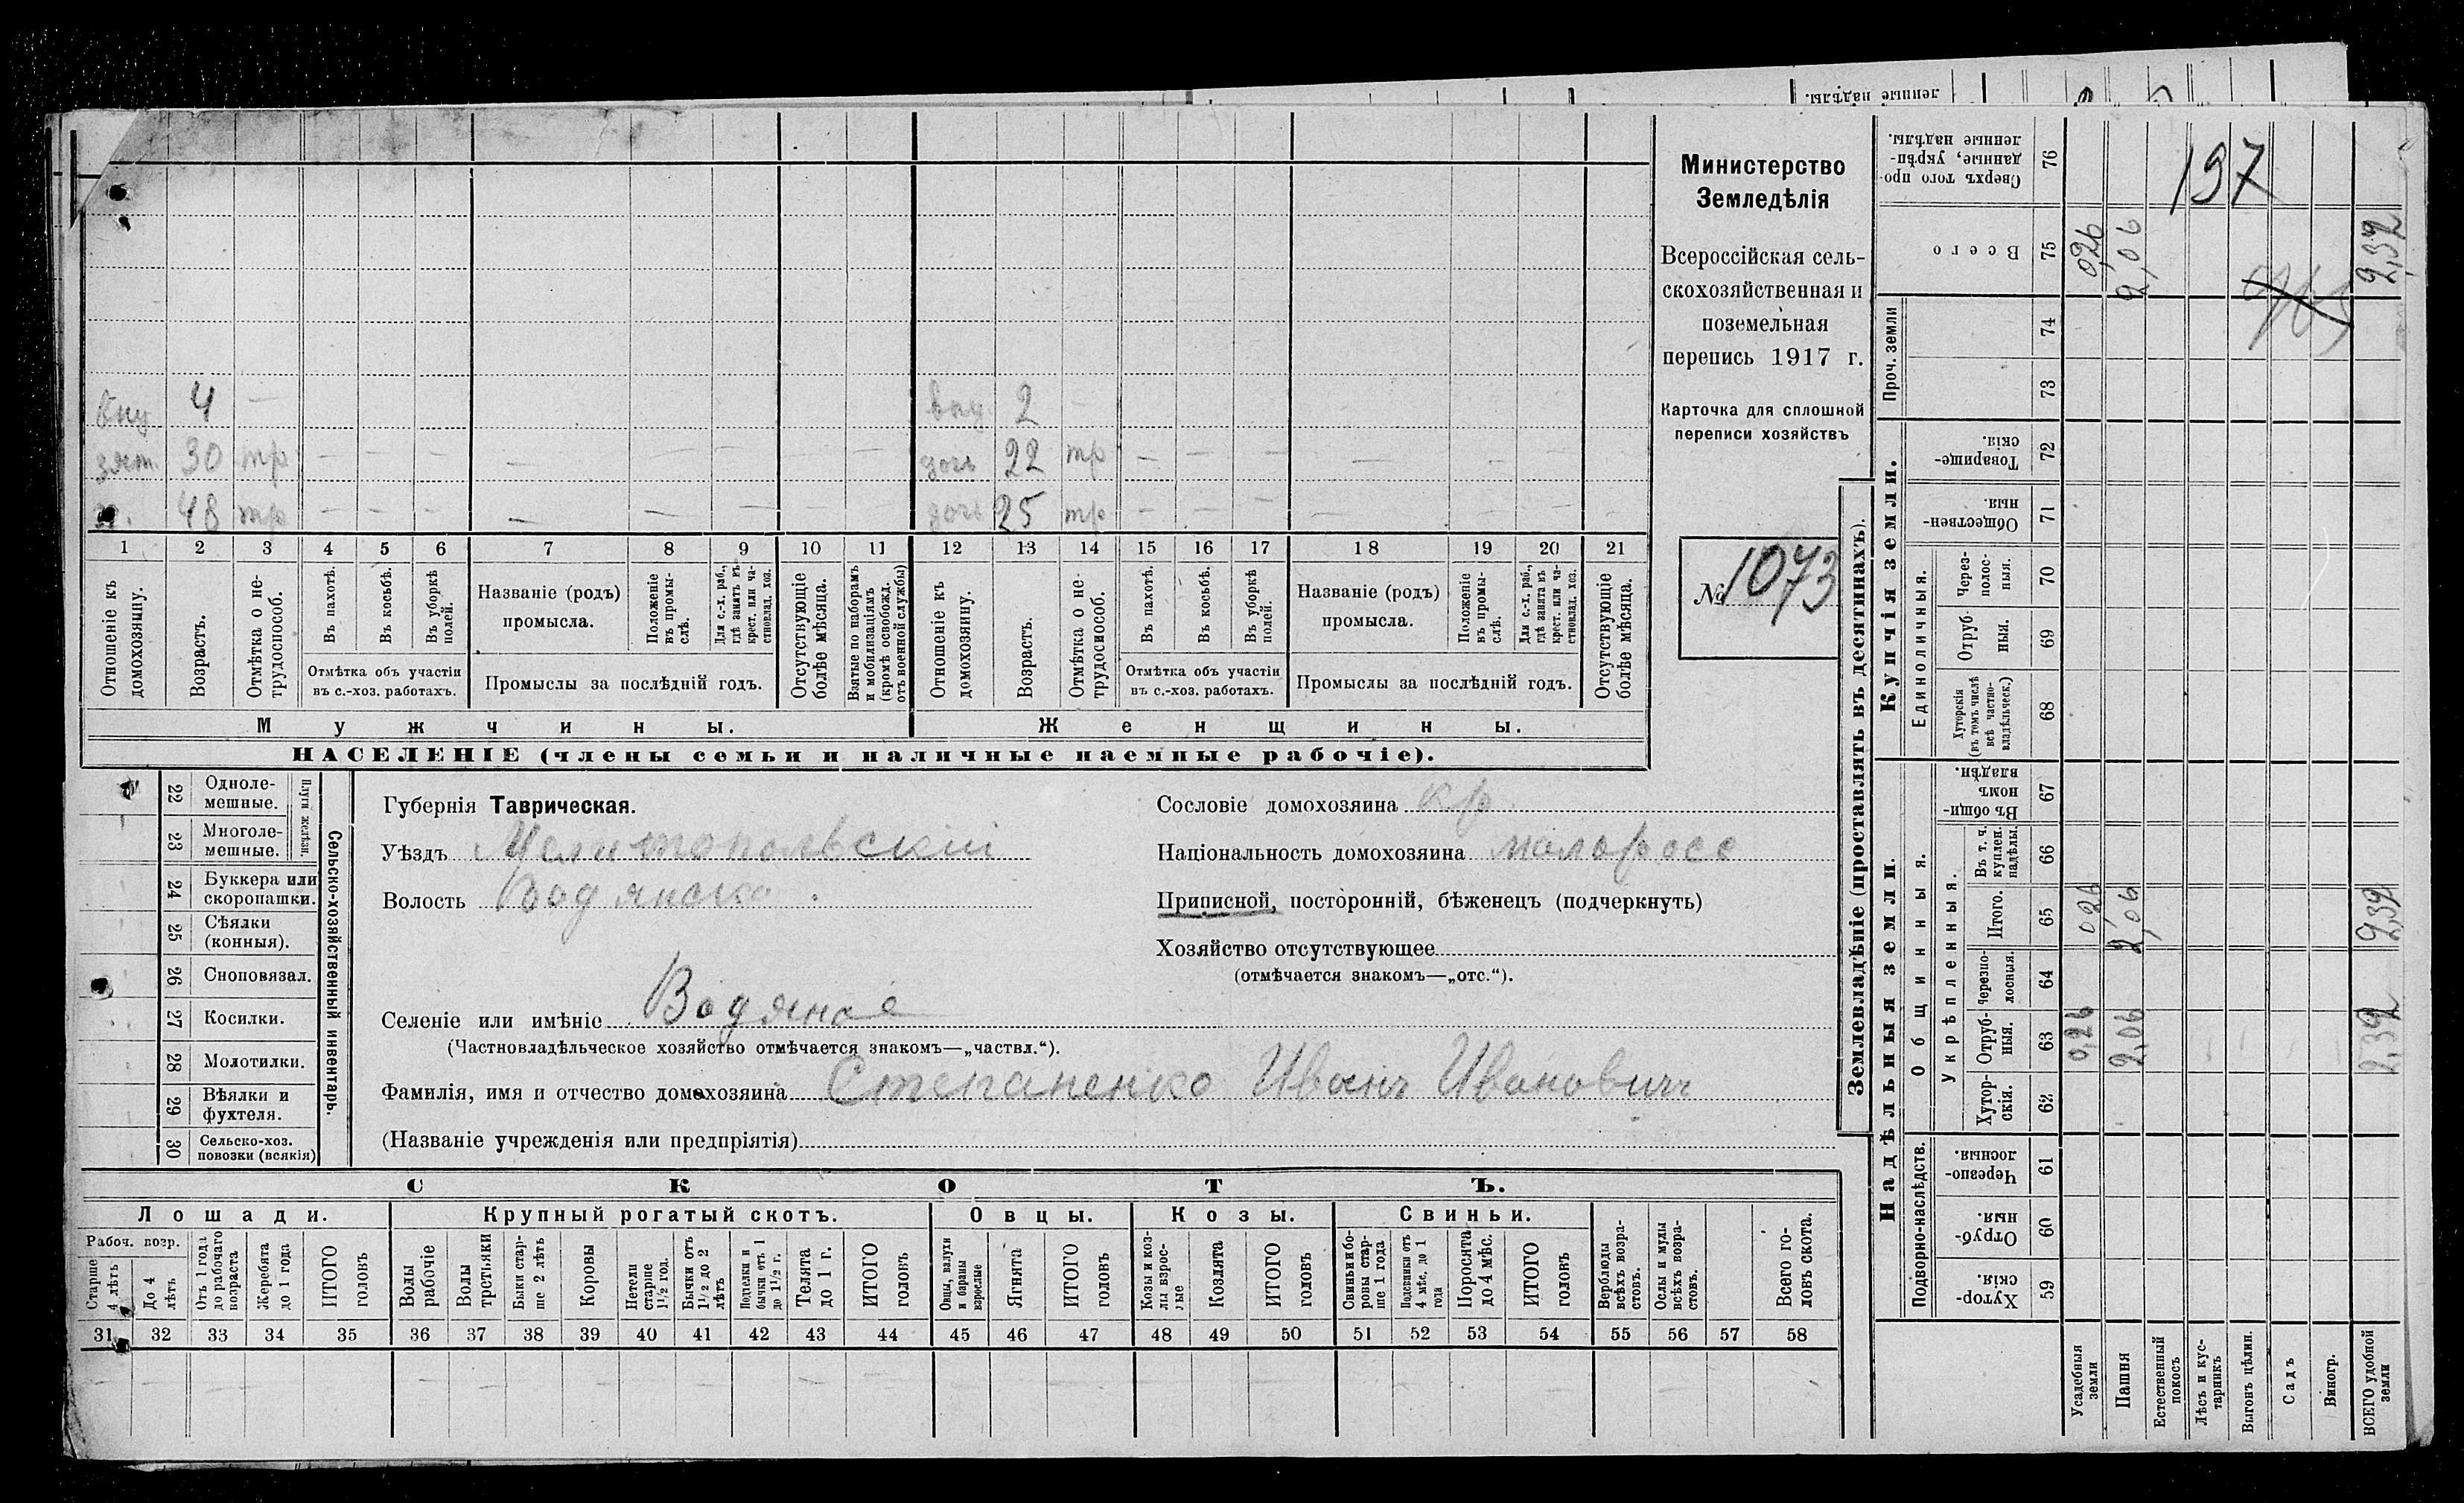 ленные надѣлы.
Министерство
Земледѣлія
Всероссійская сель-
скохозяйственная и
поземельная
перепись 1917 г.
Карточка для сплошной
переписи хозяйствъ
№ 1073
вну 4 — вну 2 —
зят. 30 тр — — — — — — дочь 22 тр — — — — —
х. 48 тр — — — — — — дочь 25 тр — — — — — —
1 2 3 4 5 6 7 8 9 10 11 12 13 14 15 16 17 18 19 20 21
Отношеніе къ домохозяину.
Возрастъ.
Отмѣтка о не-трудоспособ.
Въ пахотѣ.
Въ косьбѣ.
Въ уборкѣ полей.
Отмѣтка объ участіи
въ с.-хоз. работахъ.
Названіе (родъ)
промысла.
Положеніе въ промы-слѣ.
Для с.-х. раб., гдѣ занятъ въ крест. или ча-стновлад. хоз.
Промыслы за послѣдній годъ.
Отсутствующіе болѣе мѣсяца.
Взятые по наборамъ и мобилизаціямъ (кромѣ освобожд. отъ военной службы)
Отношеніе къ домохозяину.
Возрастъ.
Отмѣтка о не-трудоспособ.
Въ пахотѣ.
Въ косьбѣ.
Въ уборкѣ полей.
Отмѣтка объ участіи
въ с.-хоз. работахъ.
Названіе (родъ)
промысла.
Положеніе въ промы-слѣ.
Для с.-х. раб., гдѣ занята въ крест. или ча-стновлад. хоз.
Промыслы за послѣдній годъ.
Отсутствующіе болѣе мѣсяца.
Мужчины. Женщины.
НАСЕЛЕНІЕ (члены семьи и наличные наемные рабочіе).
22 Одноле-мешные.
23 Многоле-мешные.
Плуги желѣзн.
24 Буккера или скоропашки.
25 Сѣялки (конныя).
26 Сноповязал.
27 Косилки.
28 Молотилки.
29 Вѣялки и фухтеля.
30 Сельско-хоз. повозки (всякія)
Сельско-хозяйственный инвентарь.
Губернія Таврическая.
Уѣздъ Мелитопольскій
Волость Водянско
Селеніе или имѣніе Водяное
(Частновладѣльческое хозяйство отмѣчается знакомъ—„частвл.“).
Фамилія, имя и отчество домохозяина Степаненко Иванъ Ивановичъ
(Названіе учрежденія или предпріятія)
Сословіе домохозяина кр.
Національность домохозяина малоросс
Приписной, посторонній, бѣженецъ (подчеркнуть)
Хозяйство отсутствующее
(отмѣчается знакомъ—„отс.“).
СКОТЪ.
Лошади. Крупный рогатый скотъ. Овцы. Козы. Свиньи.
Рабоч. возр.
Старше 4 лѣтъ
До 4 лѣтъ
Отъ 1 года до рабочаго возраста
Жеребята до 1 года
ИТОГО головъ
Волы рабочіе
Волы третьяки
Быки стар-ше 2 лѣтъ
Коровы
Нетели старше 1½ год.
Бычки отъ 1½ до 2 лѣтъ
Подтелки и бычки отъ 1 до 1½ г.
Телята до 1 г.
ИТОГО головъ
Овцы, валухи и бараны взрослые
Ягнята
ИТОГО головъ
Козы и коз-лы взрос-лые
Козлята
ИТОГО головъ
Свиньи и бо-ровы стар-ше 1 года
Подсвинки отъ 4 мѣс. до 1 года
Поросята до 4 мѣс.
ИТОГО головъ
Верблюды всѣхъ возра-стовъ.
Ослы и мулы всѣхъ возра-стовъ.
Всего го-ловъ скота.
31 32 33 34 35 36 37 38 39 40 41 42 43 44 45 46 47 48 49 50 51 52 53 54 55 56 57 58
Землевладѣніе (проставлять въ десятинахъ).
Надѣльныя земли. Купчія земли. Проч. земли
Подворно-наслѣдств.
Общинныя.
Укрѣпленныя.
Единоличныя.
Сверхъ того про-данные, укрѣп-ленные надѣлы. 76
Всего 75 0,26 2,06 2,32
74
73
Товарище-скія. 72
Обществен-ныя. 71
Через-полос-ныя. 70
Отруб-ныя. 69
Хуторскія (въ томъ числѣ всѣ частно-владѣльческ.) 68
Въ общи-номъ владѣн. 67
Въ т. ч. куплен. надѣлы. 66
Итого. 65 0,26 2,06 2,32
Черезпо-лосныя. 64
Отруб-ныя. 63 0,26 2,06 2,32
Хутор-скія. 62
Черезпо-лосныя. 61
Отруб-ныя. 60
Хутор-скія. 59
197
Усадебныя земли
Пашня
Естественный покосъ
Лѣсъ и кус-тарникъ
Выгонъ цѣлин.
Садъ
Виногр.
ВСЕГО удобной земли